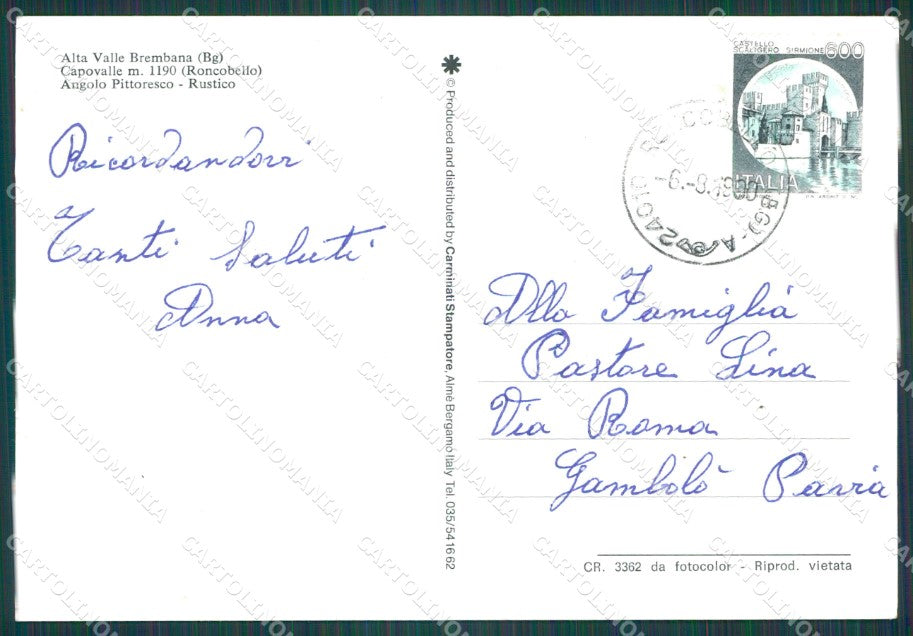 Alta Valle Brembana (Bg)
Capovalle m. 1190 (Roncobello)
Angolo Pittoresco - Rustico
Ricordandovi
Tanti Saluti
Anna
© Produced and distributed by Carminati Stampatore, Almè Bergamo Italy Tel. 035/541662
CASTELLO
SCALIGERO SIRMIONE 600
ITALIA
24010
(BG) - A
Alla Famiglia
Pastore Lina
Via Roma
Gambolò Pavia
CR. 3362 da fotocolor - Riprod. vietata
CARTOLINOMANIA